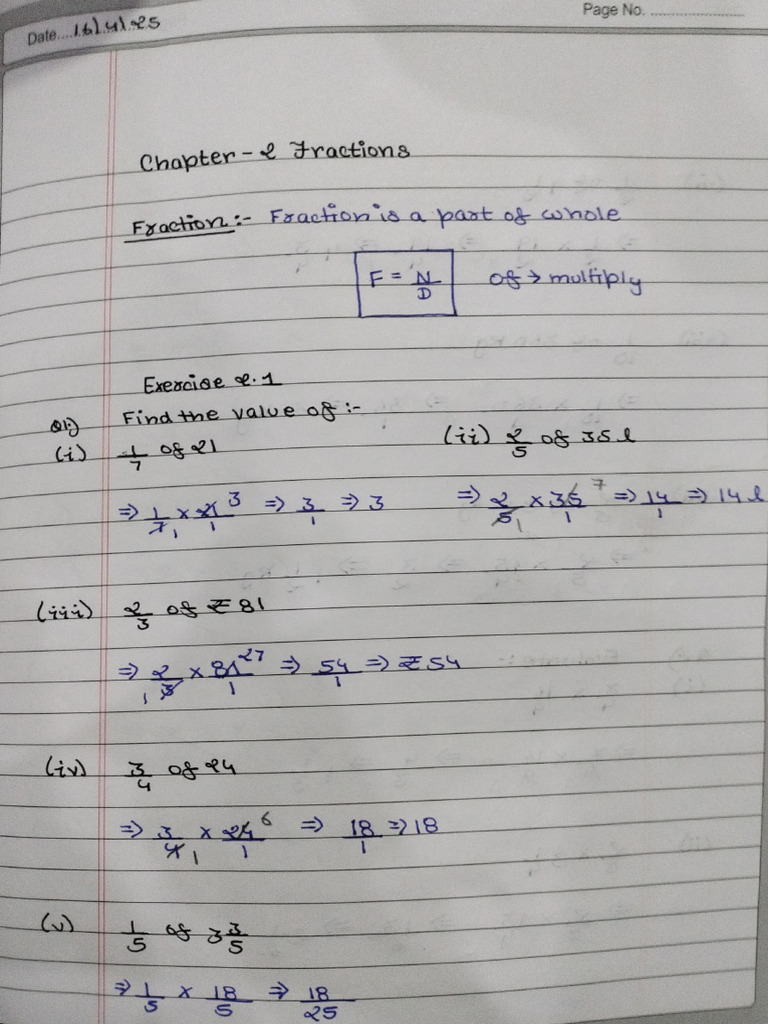 Page No. ....................
Date....16/4/25
Chapter-2 Fractions
Fraction:- Fraction is a part of whole
F = N/D of → multiply
Exercise 2.1
Q1) Find the value of :-
(i) 1/7 of 21 (ii) 2/5 of 35 l
⇒ 1/7 1 × 21/1 3 ⇒ 3/1 ⇒ 3 ⇒ 2/5 1 × 35/1 7 ⇒ 14/1 ⇒ 14 l
(iii) 2/3 of ₹ 81
⇒ 2/3 1 × 81/1 27 ⇒ 54/1 ⇒ ₹ 54
(iv) 3/4 of 24
⇒ 3/4 1 × 24/1 6 ⇒ 18/1 ⇒ 18
(v) 1/5 of 3 3/5
⇒ 1/5 × 18/5 ⇒ 18/25